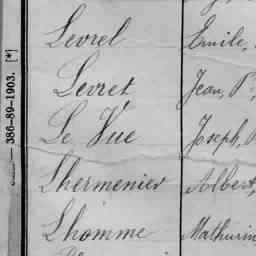 Levrel Emile,
Levret Jean, P
Le Vue Joseph,
Lhermenier Albert,
Lhomme Mathurin
386-89-1903. [*]